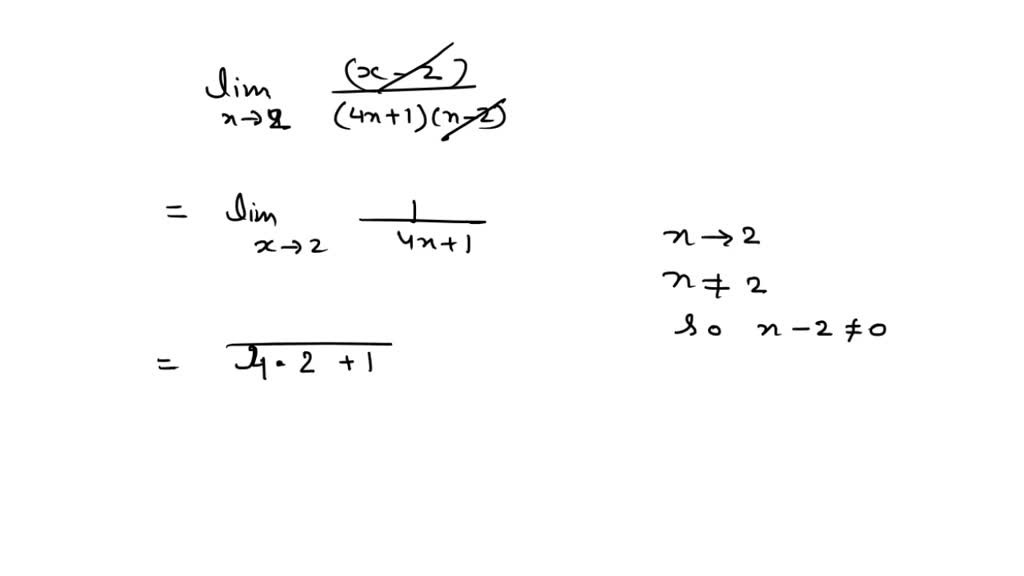 lim x→2 (x-2)/(4x+1)(x-2)
= lim x→2 1/4x+1
= /4·2+1
x→2
x≠2
so x-2≠0